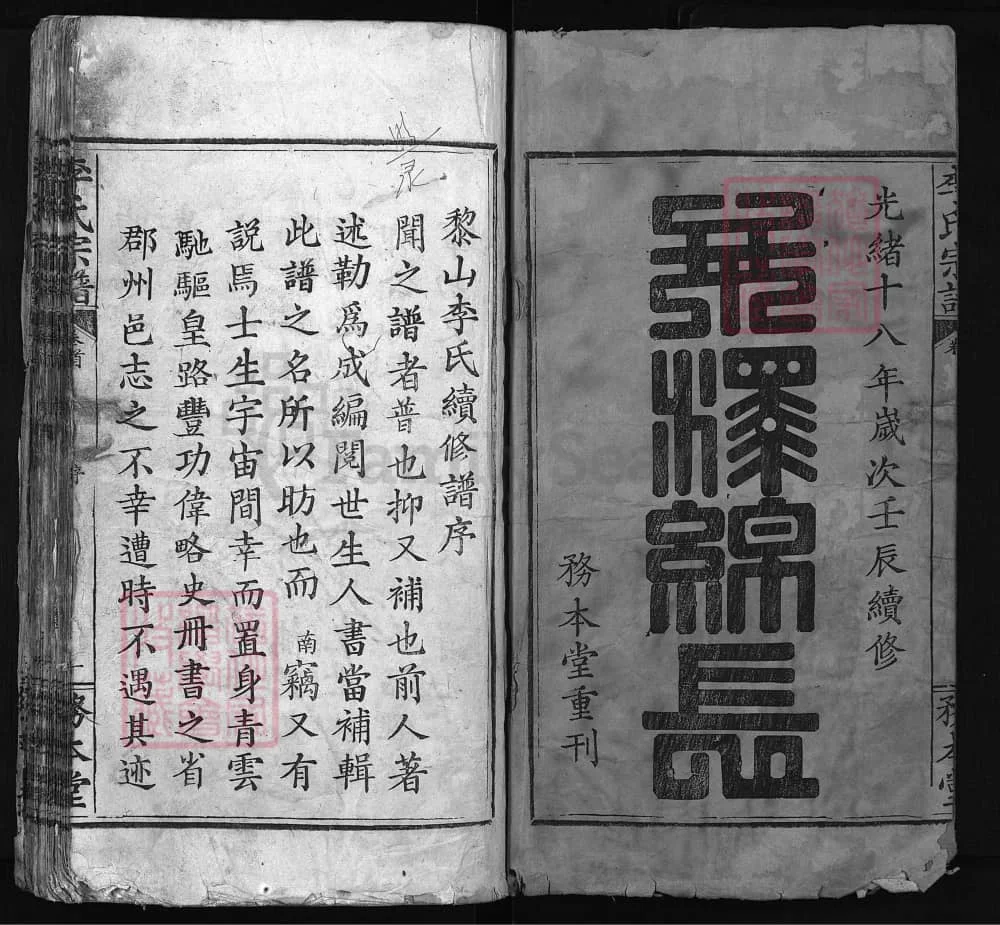 光緒十八年歲次壬辰續修
澤綿長
務本堂重刊
李氏宗譜
黎山李氏續修譜序
聞之譜者普也抑又補也前人著
述勒爲成編閱世生人書當補輯
此譜之名所以昉也而南竊又有
說焉士生宇宙間幸而置身青雲
馳驅皇路豐功偉略史冊書之省
郡州邑志之不幸遭時不遇其迹
李氏宗譜
卷首
序
務本堂